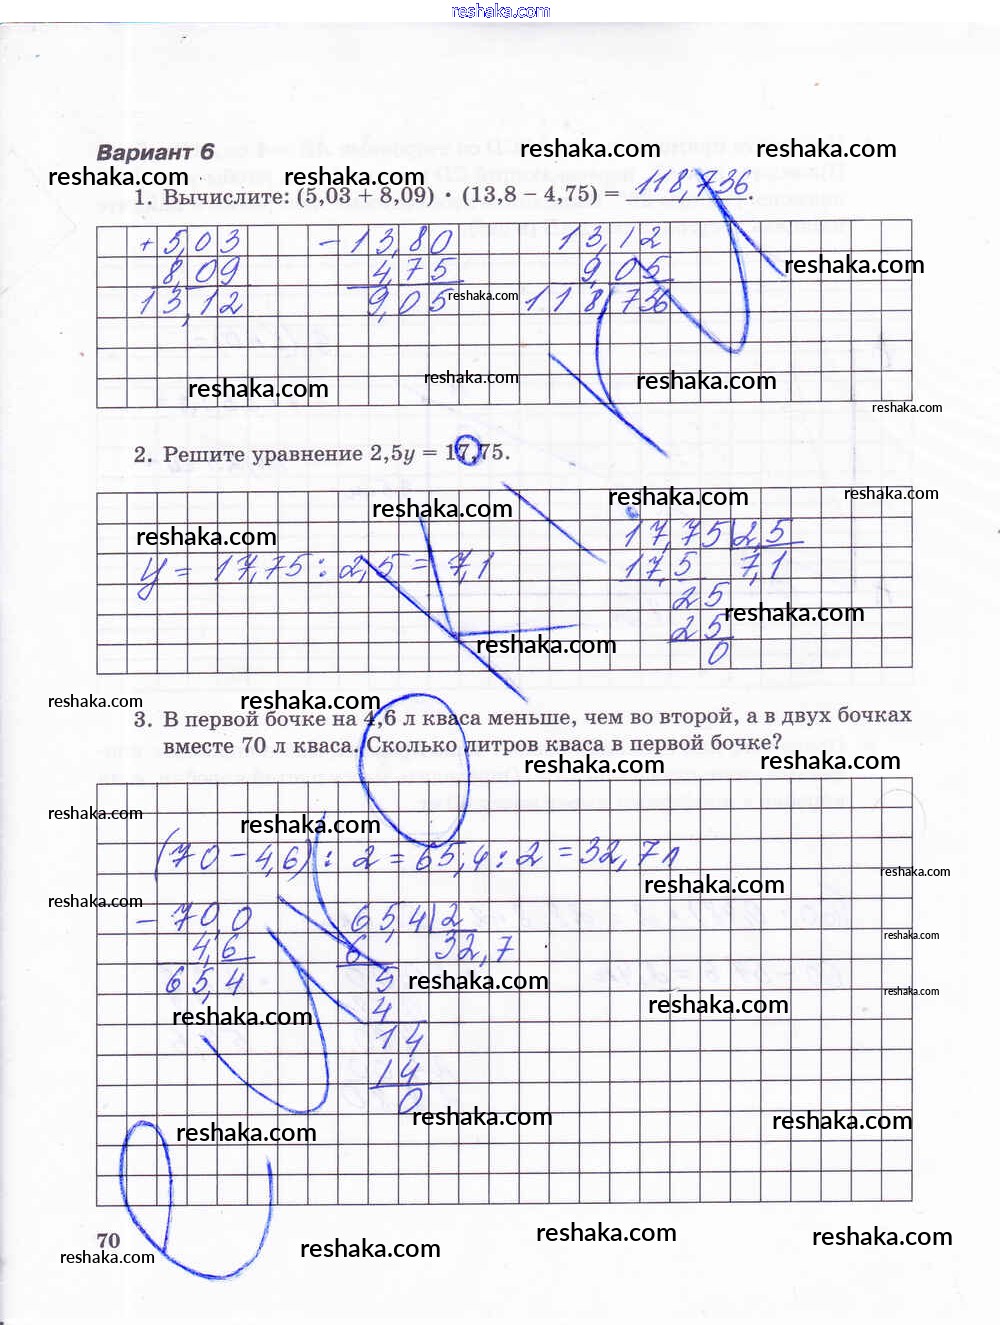 reshaka.com
Вариант 6
reshaka.com reshaka.com
reshaka.com reshaka.com
1. Вычислите: (5,03 + 8,09) · (13,8 – 4,75) = 118,736.
+ 5,03 – 13,80 13,12
8,09 4,75 9,05
reshaka.com
13,12 9,05 118,736
reshaka.com
reshaka.com reshaka.com reshaka.com
reshaka.com
2. Решите уравнение 2,5y = 17,75.
reshaka.com reshaka.com
reshaka.com
reshaka.com 17,75 2,5
y = 17,75 : 2,5 = 7,1 17,5 7,1
25
reshaka.com
25
reshaka.com 0
reshaka.com reshaka.com
3. В первой бочке на 4,6 л кваса меньше, чем во второй, а в двух бочках
вместе 70 л кваса. Сколько литров кваса в первой бочке?
reshaka.com reshaka.com
reshaka.com reshaka.com
(70 – 4,6) : 2 = 65,4 : 2 = 32,7 л
reshaka.com reshaka.com
reshaka.com
– 70,0 65,4 2
4,6 6 32,7
reshaka.com
65,4 5
reshaka.com reshaka.com
4
reshaka.com reshaka.com
14
14
0
reshaka.com reshaka.com reshaka.com
70
reshaka.com reshaka.com reshaka.com reshaka.com